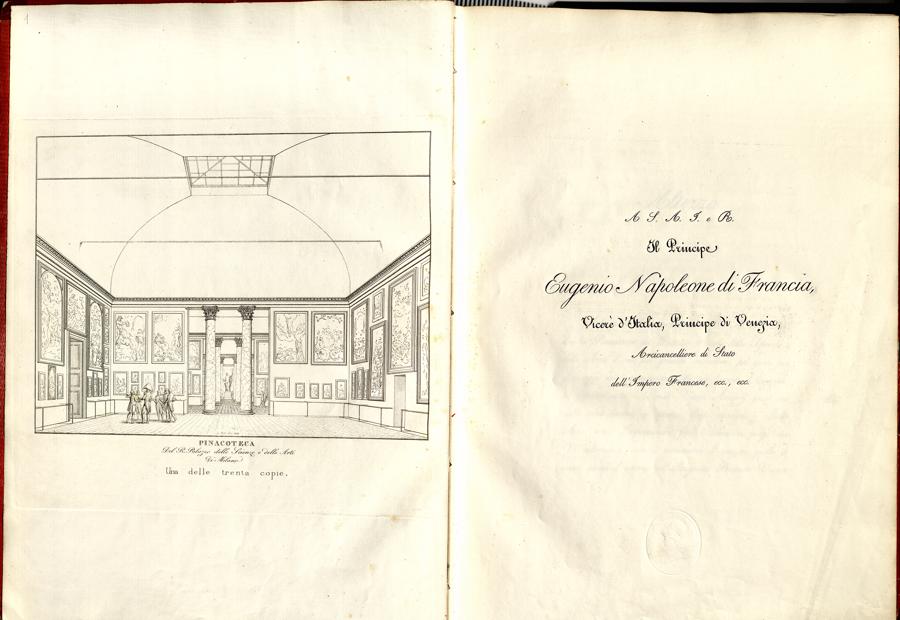 PINACOTECA
Del R. Palazzo delle Scienze e delle Arti
Di Milano
Una delle trenta copie.
A S. A. I. e R.
Il Principe
Eugenio Napoleone di Francia,
Vicerè d'Italia, Principe di Venezia,
Arcicancelliere di Stato
dell'Impero Francese, ecc., ecc.